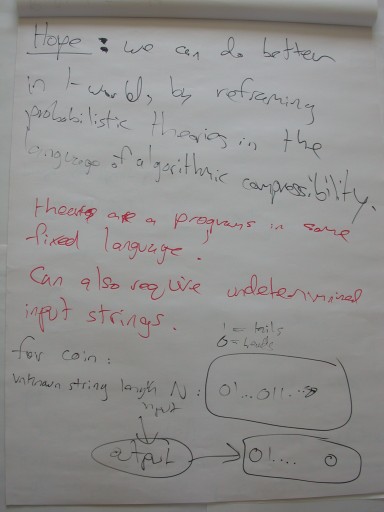 Hope : we can do better
in 1-world, by reframing
probabilistic theories in the
language of algorithmic compressibility.
theories are a programs in some
fixed language.
Can also require undetermined
input strings.
1 = tails
0 = heads
for coin:
unknown string length N : 01...011...
input
output 01.... 0